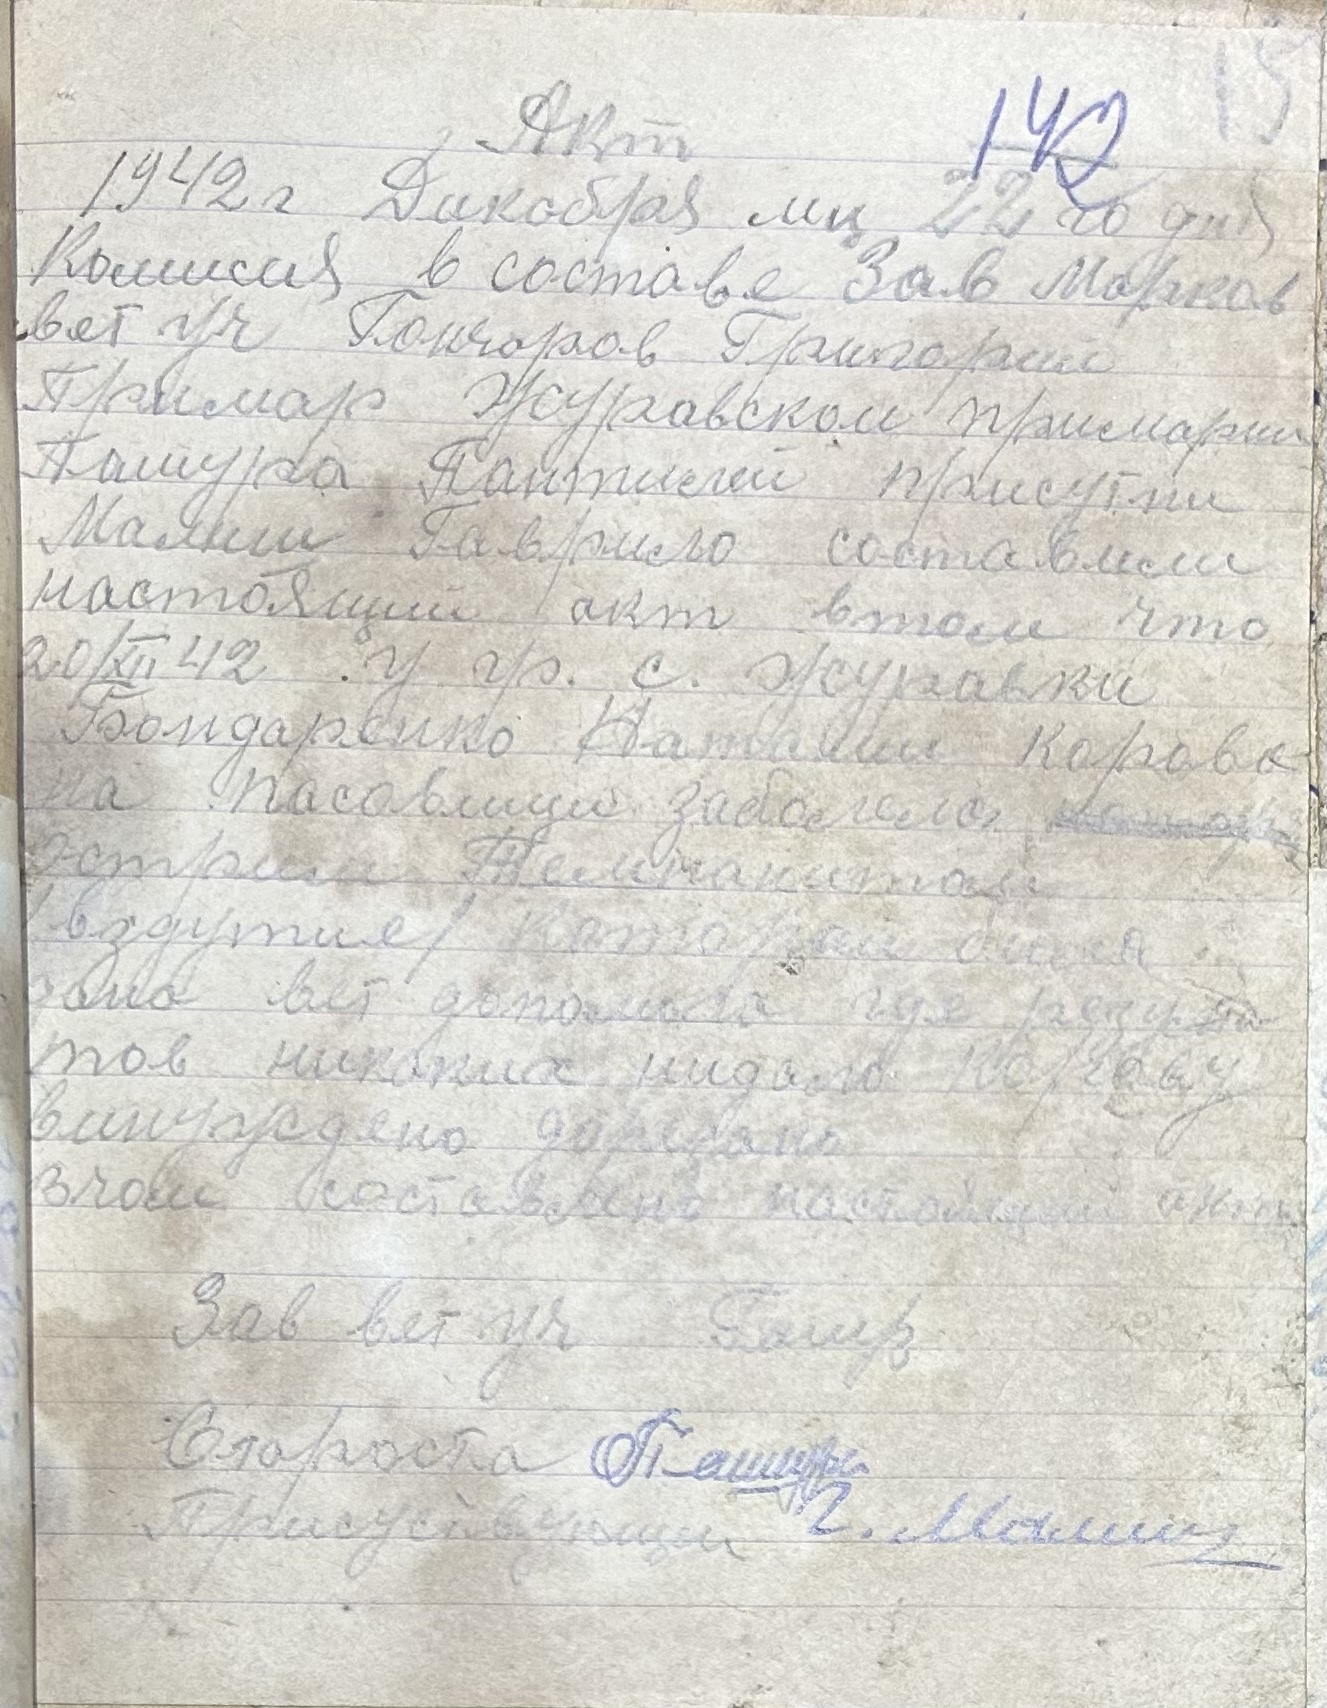 15
142
Акт
1942 г Дикобря мц 22 го дня
Комисия в составе Зав Марков
вет уч Гончаров Григорий
Примар Журавском примарии
Пашура Пантилей присутни
Малиш Гаврило составили
настоящий акт втом что
20/XII 42 у гр. с. Журавки
Бондаренко Наталии корова
на пасовищи заболела
острим Темпанитом
(вздутие) Которои оказа
зана вет допомога где результа
тов никоких нидало Корову
винуждено дорезано
вчом составлено настоящий акт
Зав вет уч
Староста Пашура
Присуствующи Г. Малиш